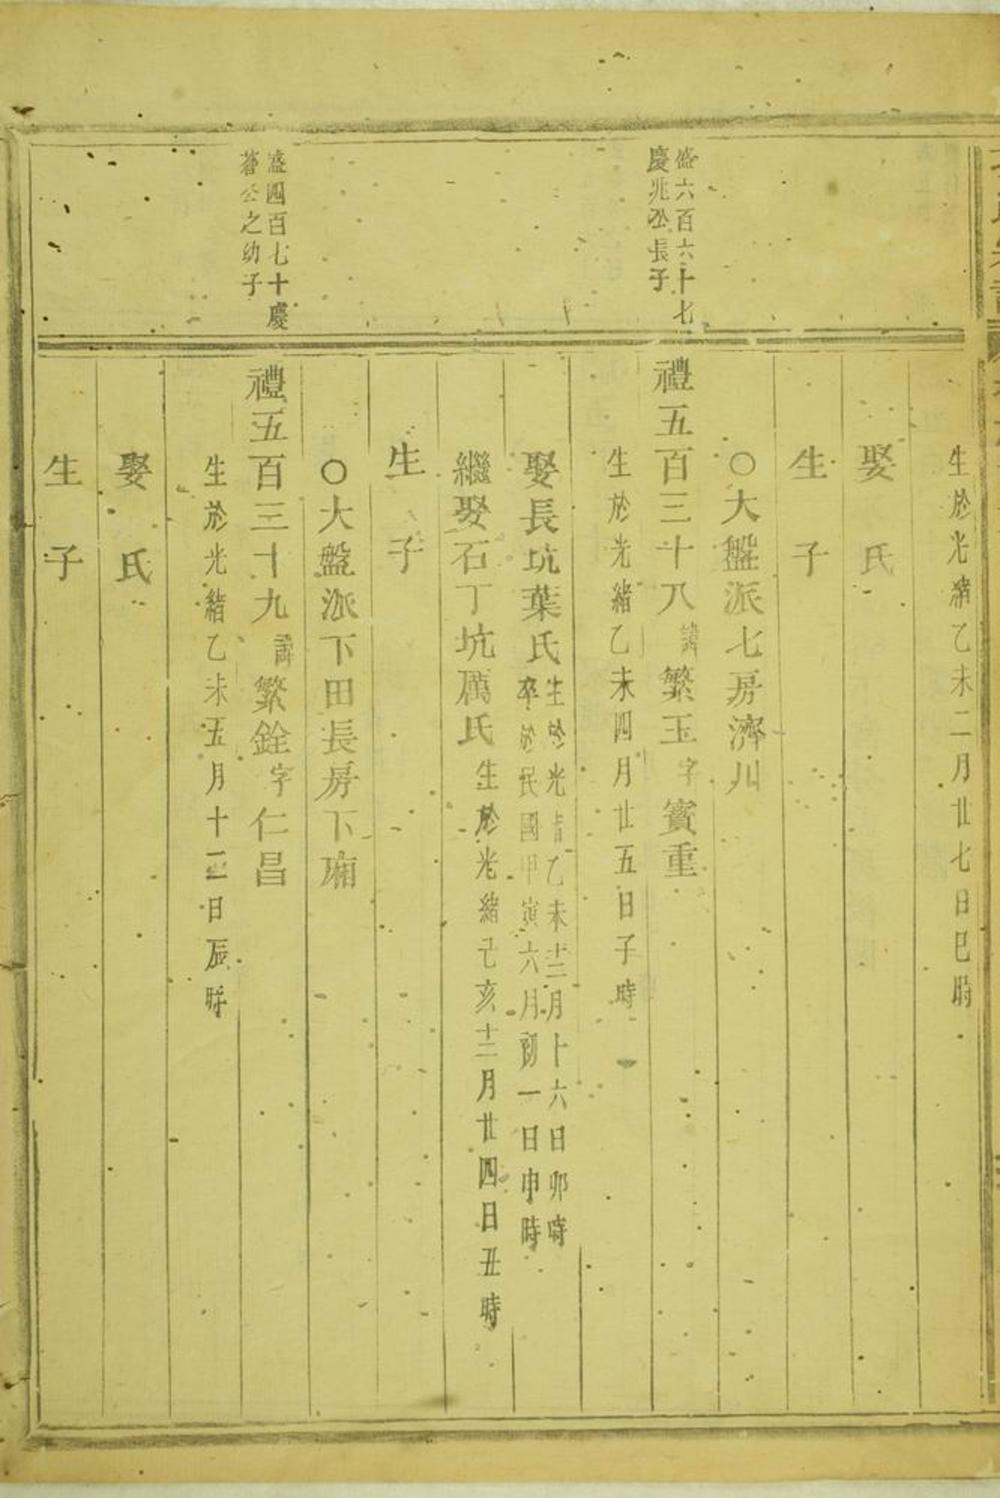 生於光緒乙未二月廿七日巳時
娶 氏
生 子
○大盤派七房濟川
盛六百六十七
慶兆公長子
禮五百三十八諱繁玉字賓重
生於光緒乙未四月廿五日子時
娶長坑葉氏生於光緒乙未十二月十六日卯時
卒於民國甲寅六月初一日申時
繼娶石丁坑厲氏生於光緒己亥十二月廿四日丑時
生 子
○大盤派下田長房下廂
盛四百七十慶
公之幼子
禮五百三十九諱繁銓字仁昌
生於光緒乙未五月十三日辰時
娶 氏
生 子